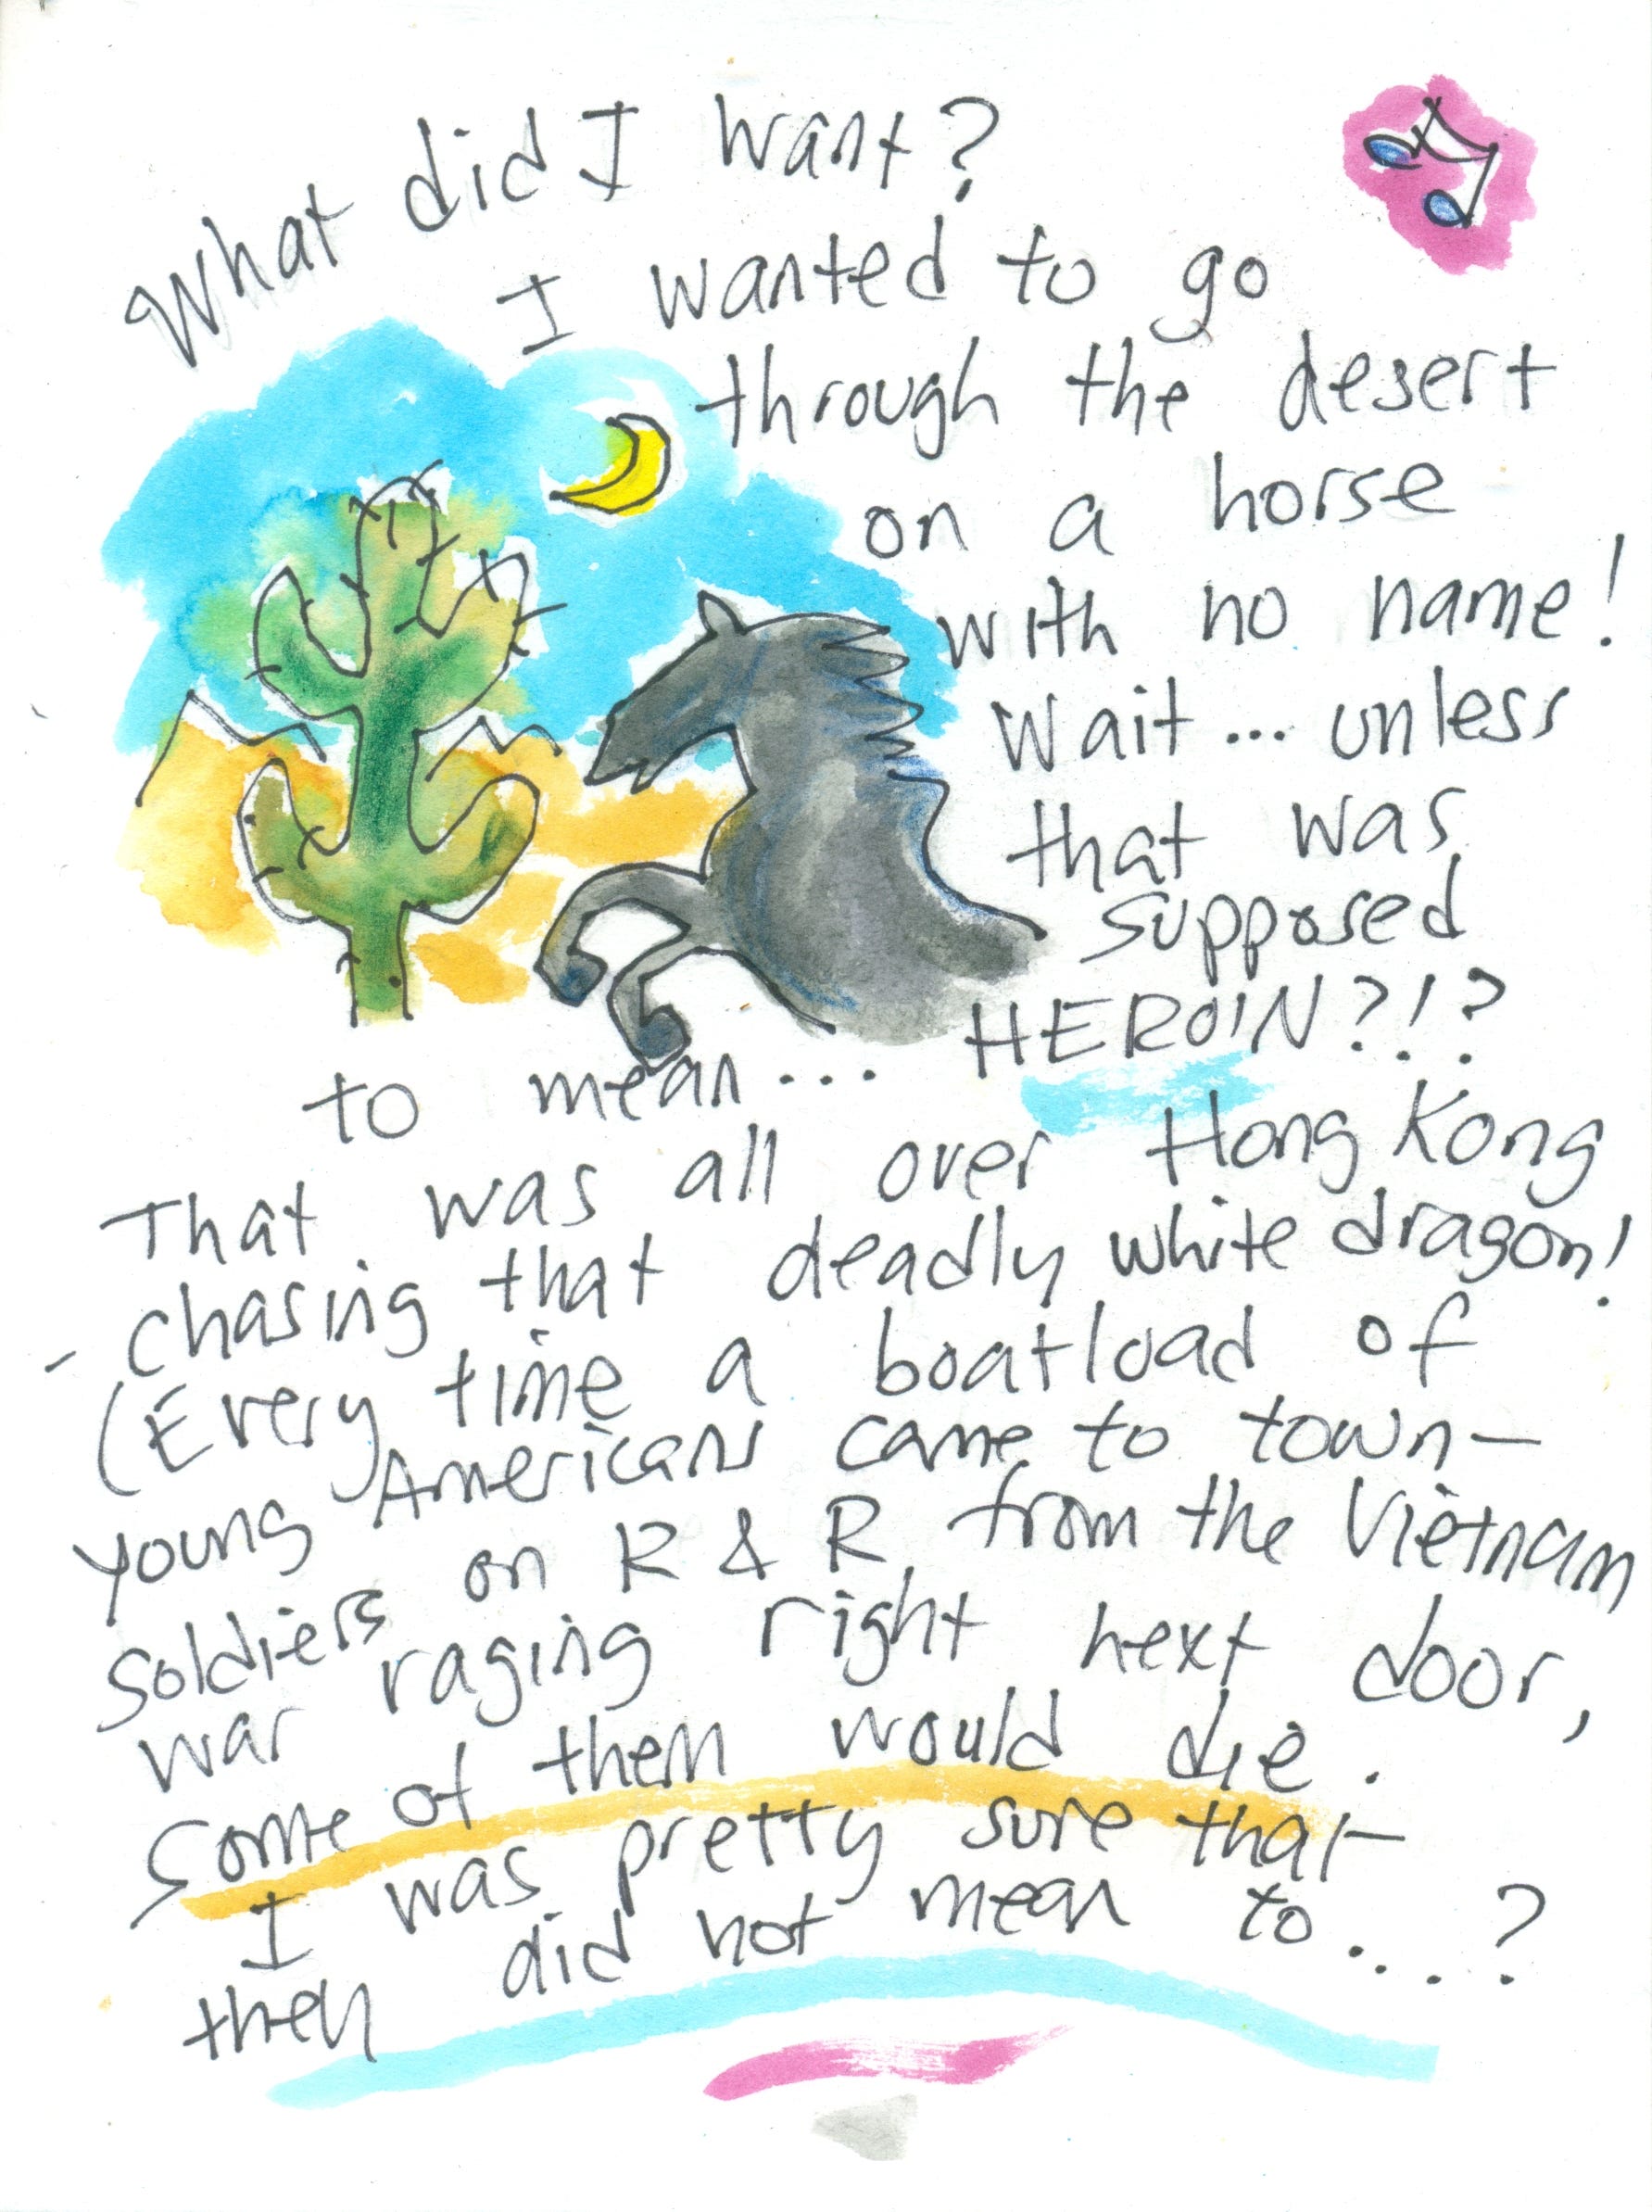 What did I want?
I wanted to go
through the desert
on a horse
with no name!
Wait... unless
that was
supposed
to mean... HEROIN?!?
That was all over Hong Kong
- chasing that deadly white dragon!
(Every time a boatload of
young Americans came to town—
soldiers on R & R from the Vietnam
war raging right next door,
some of them would die.
I was pretty sure that—
they did not mean to...?